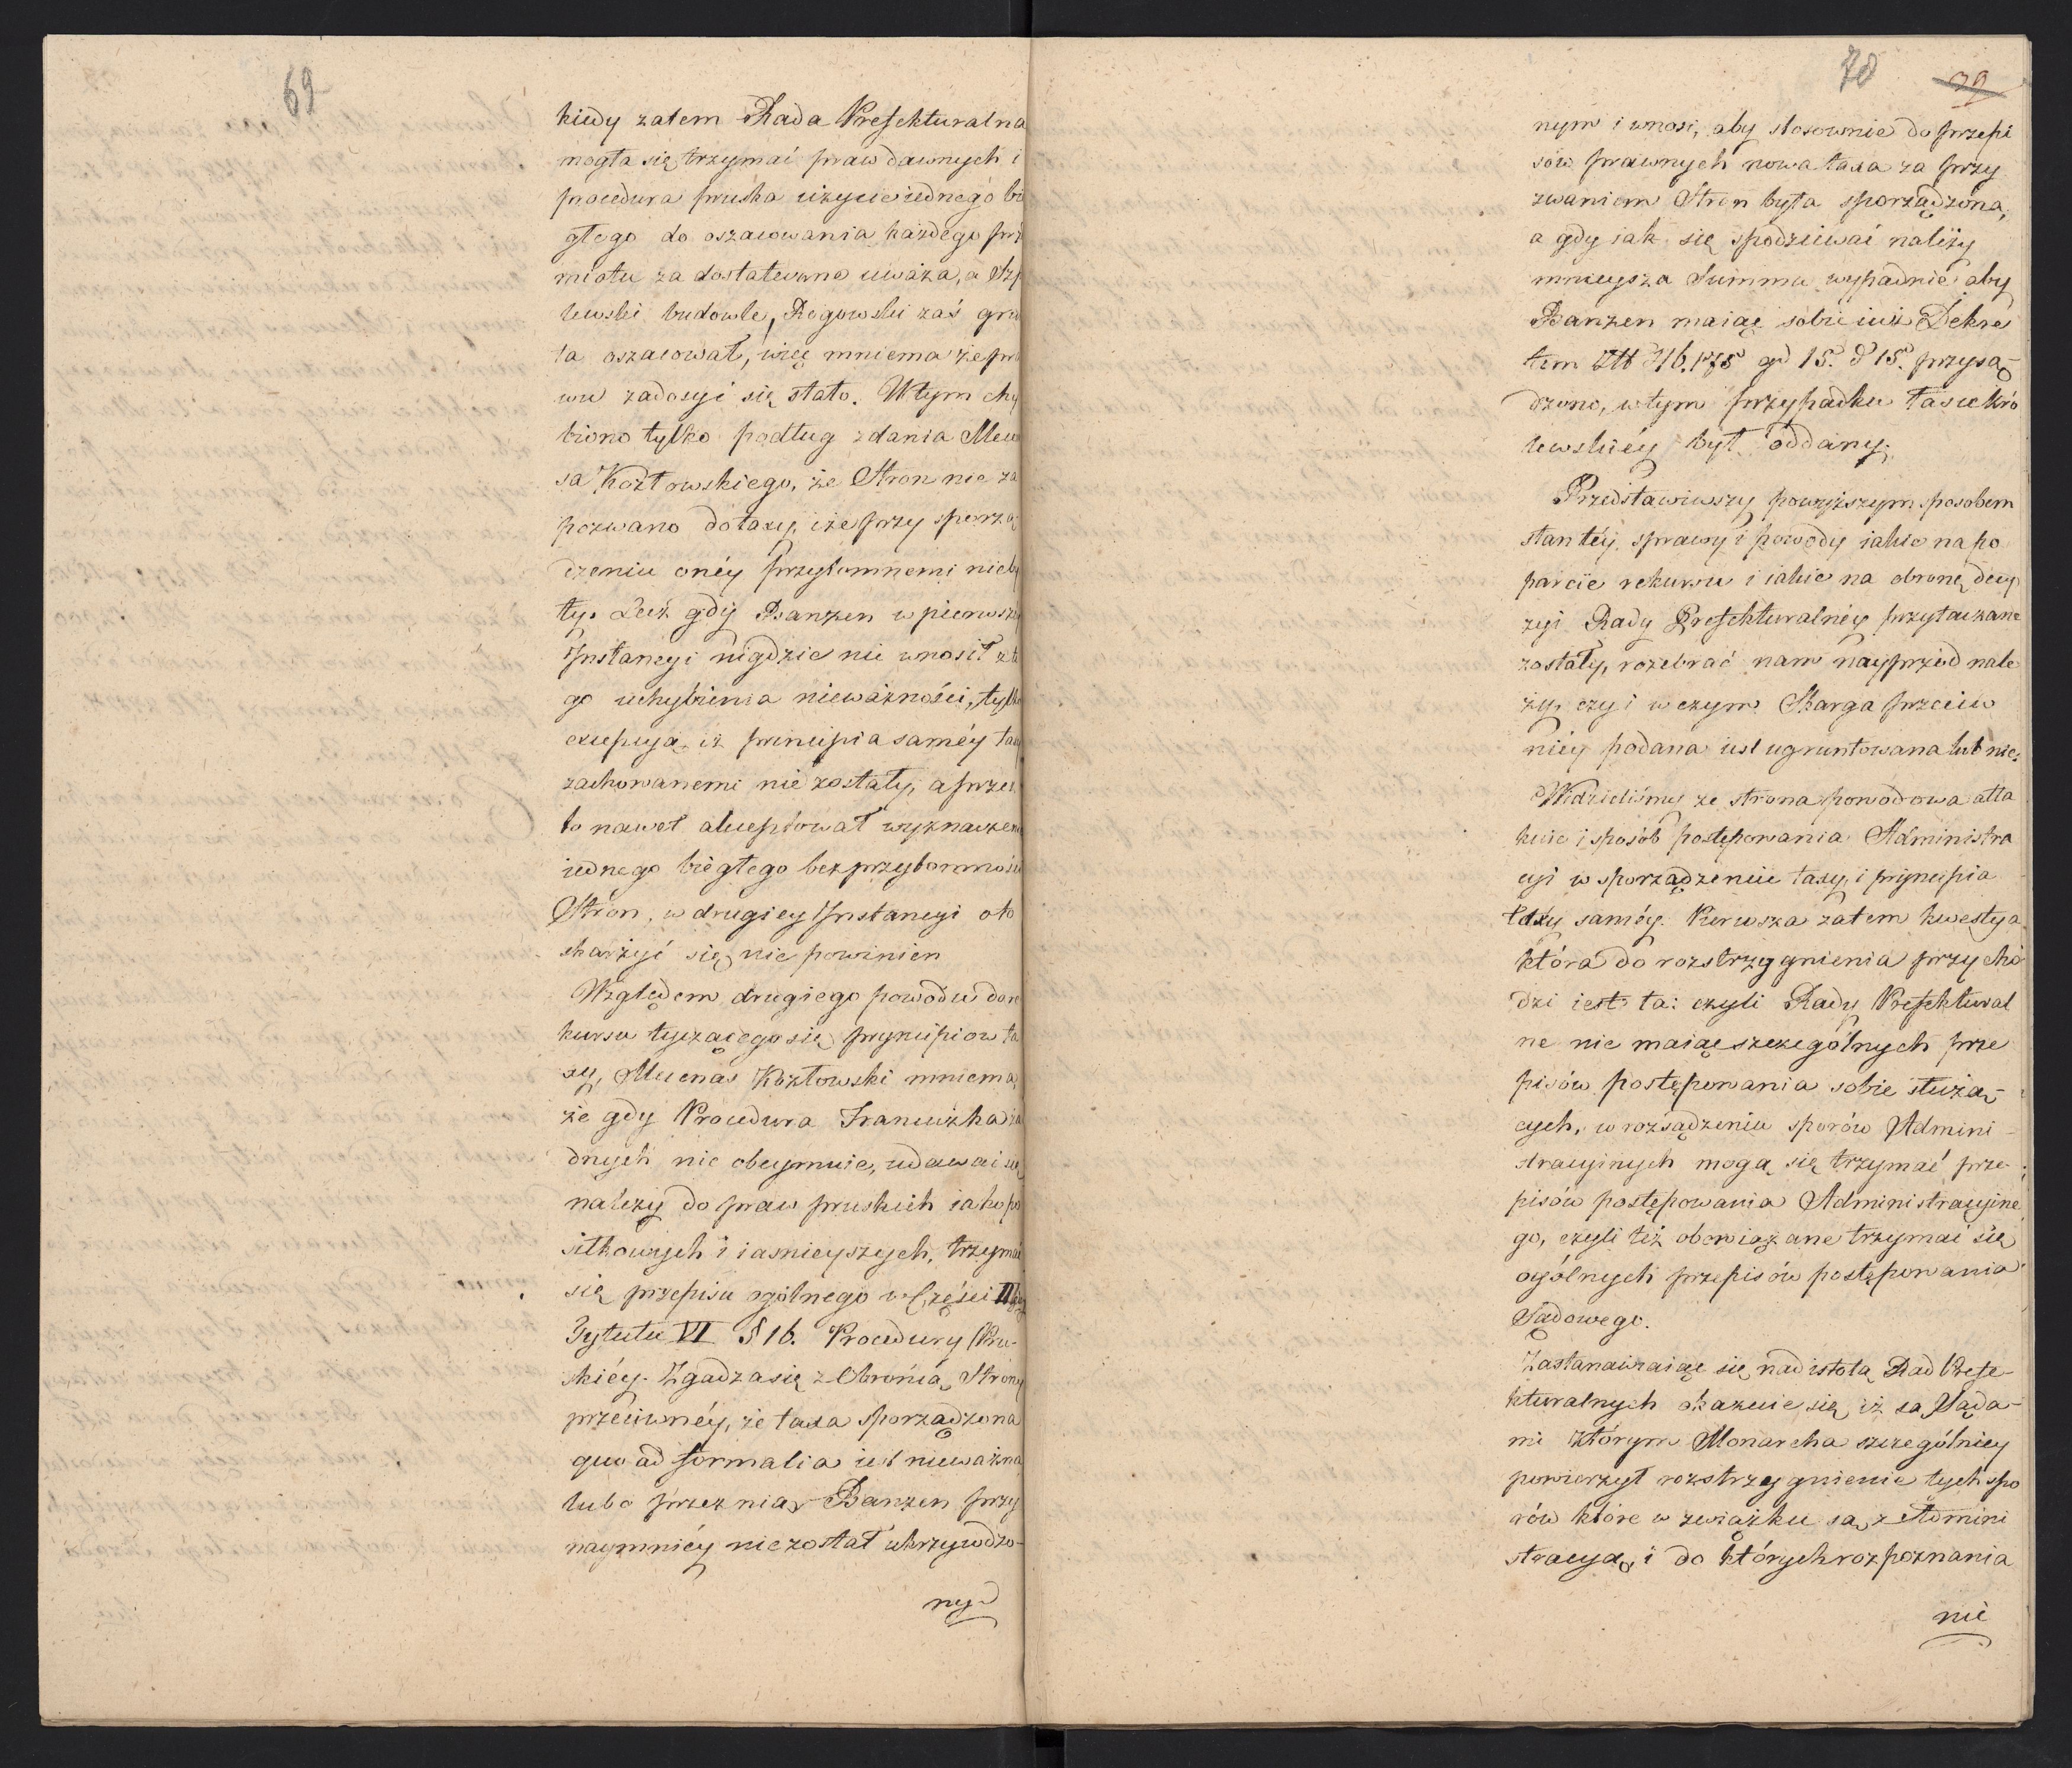 69
kiedy zatem Rada Prefekturalna
mogła się trzymać praw dawnych i
procedura pruska użycie iednego bie
głego do oszacowania każdego prze
miotu za dostateczne uważa, a
lewski budowle, Rogowski zaś grun
ta oszacował, więc mniema że pra
wu zadosyć się stało. W tym chy
biono tylko podług zdania Mece
sa Kozłowskiego, że Stron nie za
pozwano do taxy, i że przy sporzą
dzeniu onéy przytomnemi nieby
ły. Lecz gdy Banzen w pierwszey
Instancyi nigdzie nie wnosił z te
go uchybienia nieważności, tylko
excepcyą iż principia saméy taxy
zachowanemi nie zostały, a przez
to nawet akceptował wyznaczenie
iednego biegłego bez przytomności
Stron, w drugiey Instancyi o to
skarżyć się nie powinien
Względem drugiego powodu do re
kursu tyczącego się pryncipiow ta
xy, Mecenas Kozłowski mniema,
że gdy Procedura Francuzka ża
dnych nie obeymuie, udawać się
należy do praw pruskich iako po
siłkowych i iasnieyszych, trzymać
się przepisu ogólnego w Części II
Tytułu VI § 16. Procedury Pru-
skiéy. Zgadza się z Obrońcą Strony
przeciwnéy, że taxa sporządzona
quo ad formalia iest nieważną
lubo przez nią Banzen przy
naymniéy nie został ukrzywdzo-
ny
70
39
nym i wnosi, aby stosownie do przepi
sów prawnych nowa taxa za przy
zwaniem Stron była sporządzona,
a gdy iak się spodziewać należy
mnieysza Summa wypadnie aby
Banzen maiąc sobie iuż Dekre
tem 1175 gd 15. d 15. przysą-
dzono, w tym przypadku łasce Kró
lewskiéy był oddany.
Przedstawiwszy powyższym sposobem
stan téy sprawy i powody iakie na po
parcie rekursu i iakie na obronę decy
zyi Rady Prefekturalnéy przytaczane
zostały, rozebrać nam nayprzód nale
ży, czy i w czym Skarga przeciw
niéy podana iest ugruntowana lub nie.
Widzieliśmy że strona powodowa atta
kuie i sposób postępowania Administra
cyi w sporządzeniu taxy i pryncipia
taxy saméy. Pierwsza zatem kwestya
która do rozstrzygnienia przycho
dzi iest ta: czyli Rady Prefektural
ne nie maiąc szczególnych prze
pisów postępowania sobie służą-
cych, w rozsądzeniu sporów Admini-
stracyinych mogą się trzymać prze-
pisów postępowania Administracyine
go, czyli też obowiązane trzymać się
ogólnych przepisów postępowania
Sądowego.
Zastanawiaiąc się nad istotą Rad Prefe-
kturalnych okazuie się, iż są Sąda-
mi którym Monarcha szczególniey
powierzył rozstrzygnienie tych spo
rów które w związku są z Admini
stracyą, i do których rozpoznania
nie